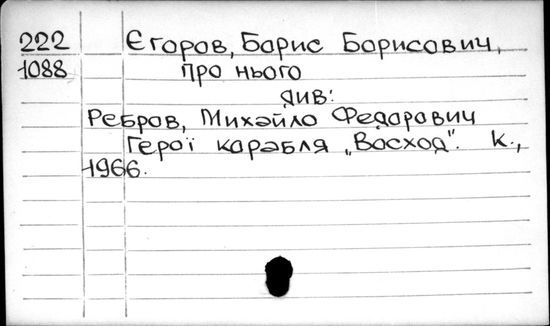 222 Єгоров, Борис Борисович,
1088 про нього
див:
Ребров, Михайло Федорович
Герої корабля „Восход". К.,
1966.